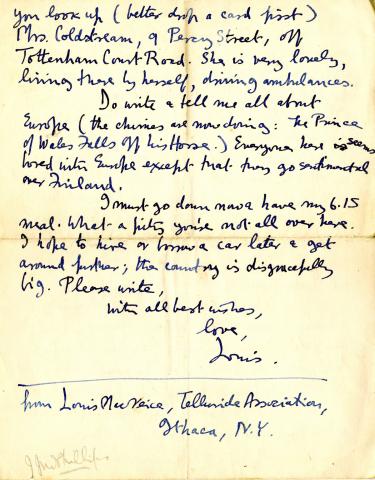 you look up (better drop a card first)
Mrs. Coldstream, 9 Percy Street, off
Tottenham Court Road. She is very lonely,
living there by herself, driving ambulances.
Do write & tell me all about
Europe (the chimes are now doing: The Prince
of Wales Falls off his Horse.) Everyone here is seems
bored with Europe except that they go sentimental
over Finland.
I must go down now & have my 6.15
meal. What a pity you're not all over here.
I hope to hire or borrow a car later & get
around further; the country is disgracefully
big. Please write,
with all best wishes,
love,
Louis.
from Louis MacNeice, Telluride Association,
Ithaca, N.Y.